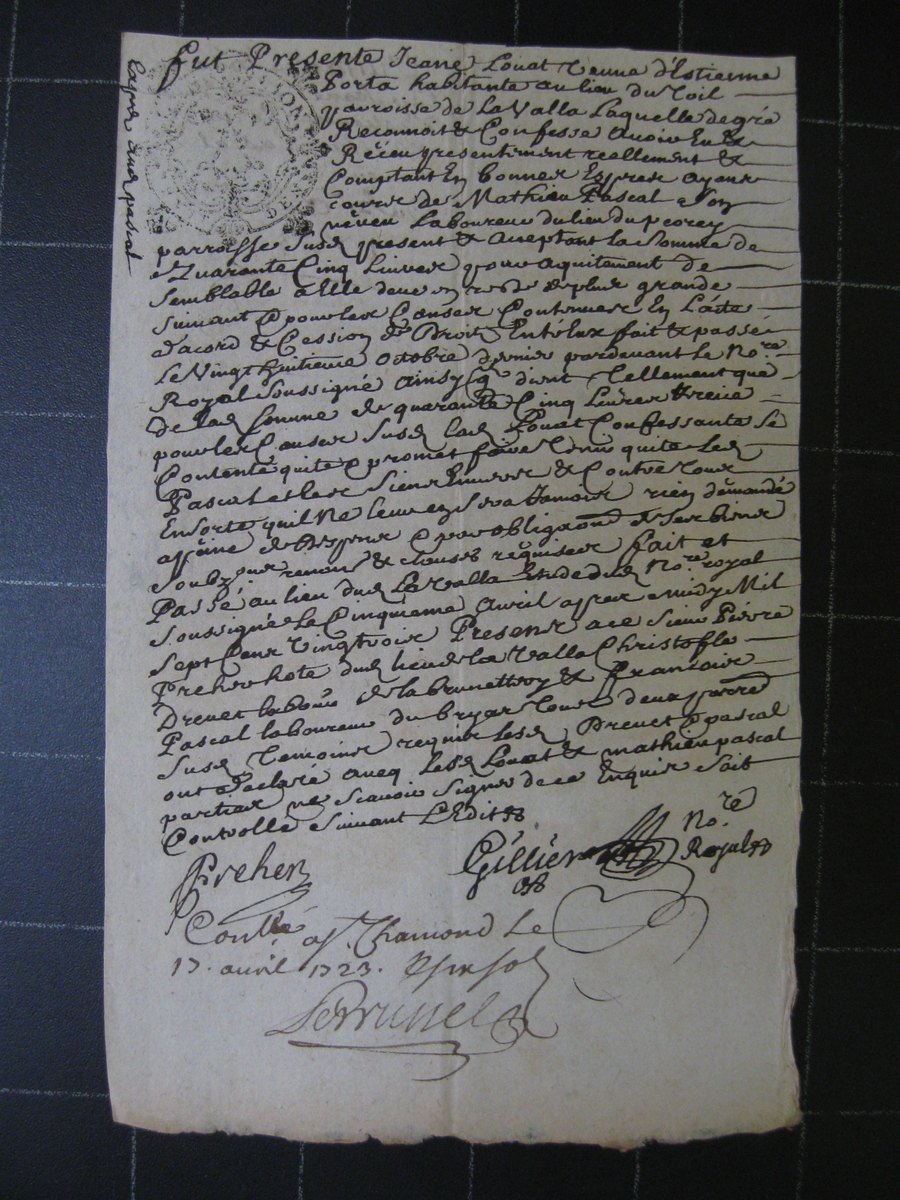 fut Presente Jeane Louat veuve d'Estienne
Porta habitante au lieu du Toil
parroisse de La Valla Laquelle de gré
Reconnoit & Confesse avoir Eu &
Réçeu presentiment reellement &
Comptant En bonnes Espeses ayant
cours de Mathieu Pascal son
néveu Laboureur du lieu du pcorey
parroisse susd present & aceptant la somme de
Quarante Cinq Livres pour aquitement de
semblable a Elle deue en reste de plus grande
suivant & pour les Causes Contenues En Lacte
d'acord & Cession de Droit Entr'Eux fait & passé
Le Vingt huitieme octobre dernier pardevant Le No.re
Royal soussigné ainsy Tellement que
de lad somme de quarante Cinq Livres
pour les Causes susd lad Louat Confessante se
Contente quite & promet faire tenir quite led
Pascal et les siens Envers & Contre tous
En sorte quil Ne leur en sera Jamais rien demandé
a peine de & par obligaon de ses biens
soubz renons & clauses requises fait et
Passé au lieu dud La Valla Etude dud No.re royal
soussigné Le Cinquieme avril apres midy Mil
sept Cent vingt trois Presens a ce sieur Pierre
Preher hote dud lieu de La Valla Christofle
Drevet labour de la brunettery & Francois
Pascal laboureur du bryat tous deux parred
susd Temoins requis lesd Drevet & pascal
ont declaré aveq lesd Louat & mathieu pascal
parties ne scavoir signer de ce Enquis soit
Controllé suivant L'Edit
Preher
Gillier No.re
Royal
Contllé a St. Chamond Le
17. avril 1723.